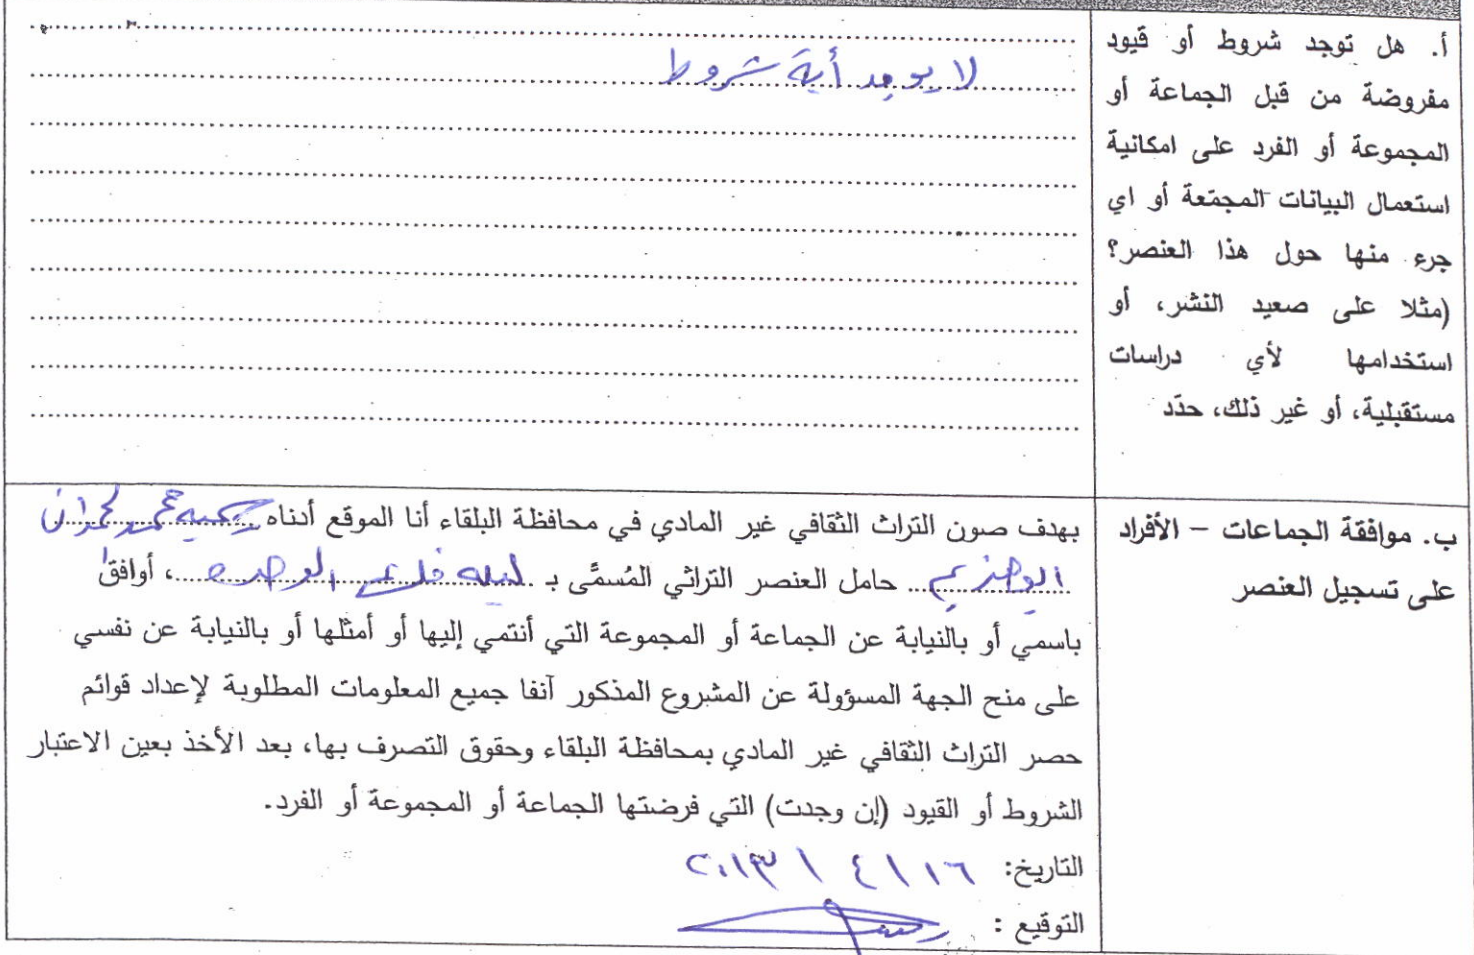 أ. هل توجد شروط أو قيود
مفروضة من قبل الجماعة أو
المجموعة أو الفرد على امكانية
استعمال البيانات المجمّعة أو اي
جرء منها حول هذا العنصر؟
(مثلا على صعيد النشر، أو
استخدامها لأي دراسات
مستقبلية، أو غير ذلك، حدّد
لا يوجد أية شروط
ب. موافقة الجماعات – الأفراد
على تسجيل العنصر
بهدف صون التراث الثقافي غير المادي في محافظة البلقاء أنا الموقع أدناه
حامل العنصر التراثي المُسمَّى بـ ليله، أوافق
باسمي أو بالنيابة عن الجماعة أو المجموعة التي أنتمي إليها أو أمثلها أو بالنيابة عن نفسي
على منح الجهة المسؤولة عن المشروع المذكور آنفا جميع المعلومات المطلوبة لإعداد قوائم
حصر التراث الثقافي غير المادي بمحافظة البلقاء وحقوق التصرف بها، بعد الأخذ بعين الاعتبار
الشروط أو القيود (إن وجدت) التي فرضتها الجماعة أو المجموعة أو الفرد.
التاريخ: ١٦ \ ٤ \ ٢٠١٣
التوقيع :